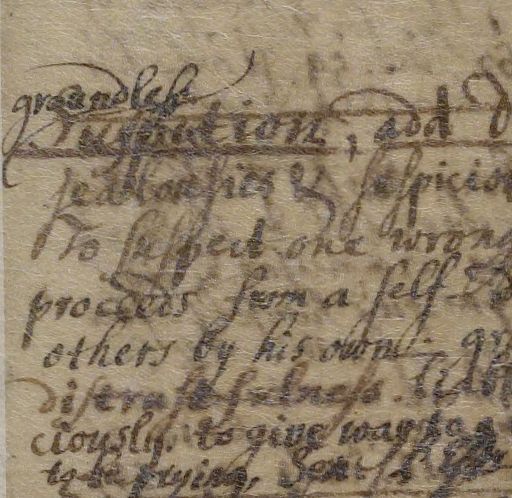 groundless
Suspition, add D
jealousies & suspicio
To suspect one wrong
proceeds from a self
others by his own. gr
distrustfulness.
ciously. to give way to a
to be prying,